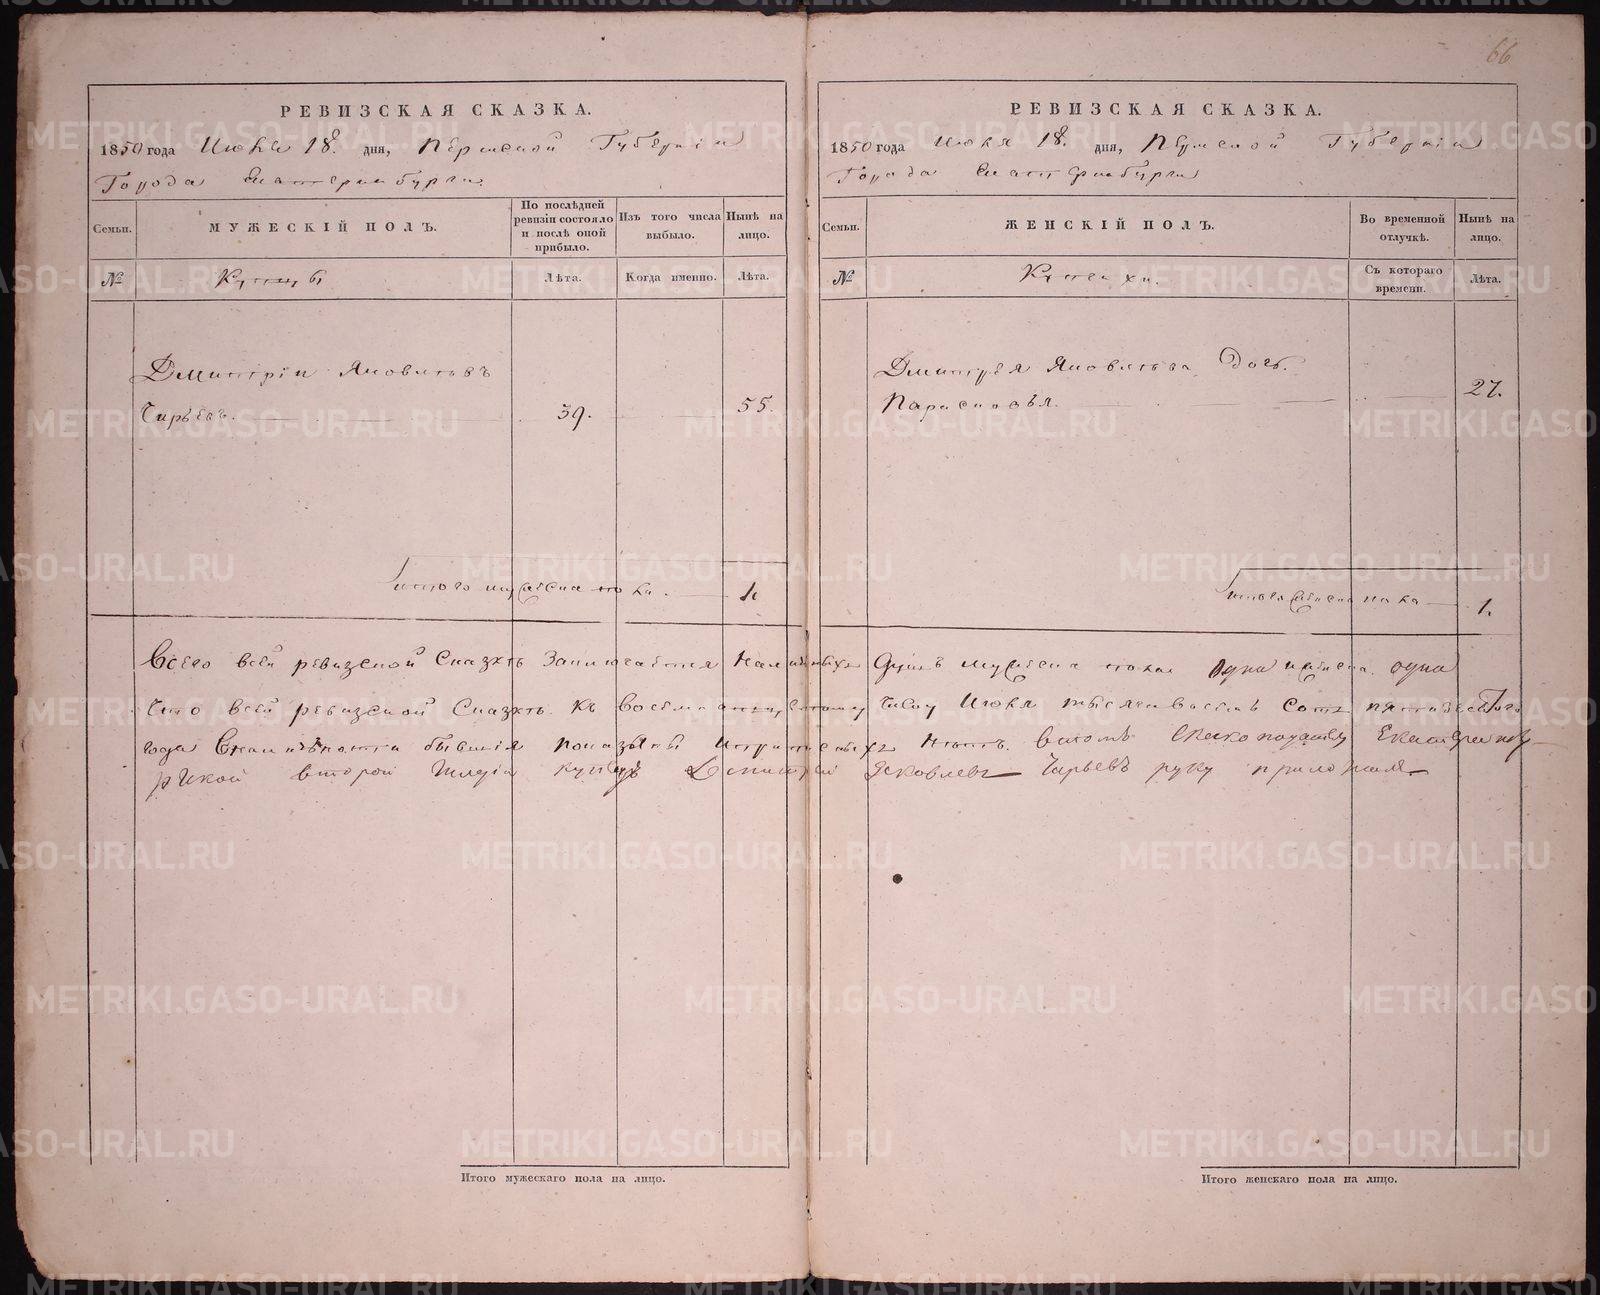 66
РЕВИЗСКАЯ СКАЗКА.
1850 года Июня 18. дня, Пермской Губерніи
Города Екатеринбурга.
Семьи.
МУЖЕСКІЙ ПОЛЪ.
По послѣдней ревизіи состояло и послѣ оной прибыло.
Изъ того числа выбыло.
Нынѣ на лицо.
№
Купцы
Лѣта.
Когда именно.
Лѣта.
Дмитріи Яковлевъ
Чирьевъ. 39. 55.
Итого мужеска пола. 1.
РЕВИЗСКАЯ СКАЗКА.
1850 года Июня 18. дня, Пермской Губерніи
Города Екатеринбурга
Семьи.
ЖЕНСКІЙ ПОЛЪ.
Во временной отлучкѣ.
Нынѣ на лицо.
№
Купчихи.
Съ котораго времени.
Лѣта.
Дмитрея Яковлева дочь.
Парасковья. 27.
Итого женска пола 1.
Всего всей ревизской Сказкѣ Заключается Наличныхъ Душъ мужеска пола одна женска одна
Что всей ревизской Сказкѣ къ восемнатцетому числу Июня тысяча восемь сотъ пятидесятого
года бывшія показаны нѣтъ. втомъ Екатеринбу
ргской второй гилдіи купецъ Дмитрей Яковлевъ Чирьевъ руку приложилъ
Итого мужескаго пола на лицо.
Итого женскаго пола на лицо.
METRIKI.GASO-URAL.RU